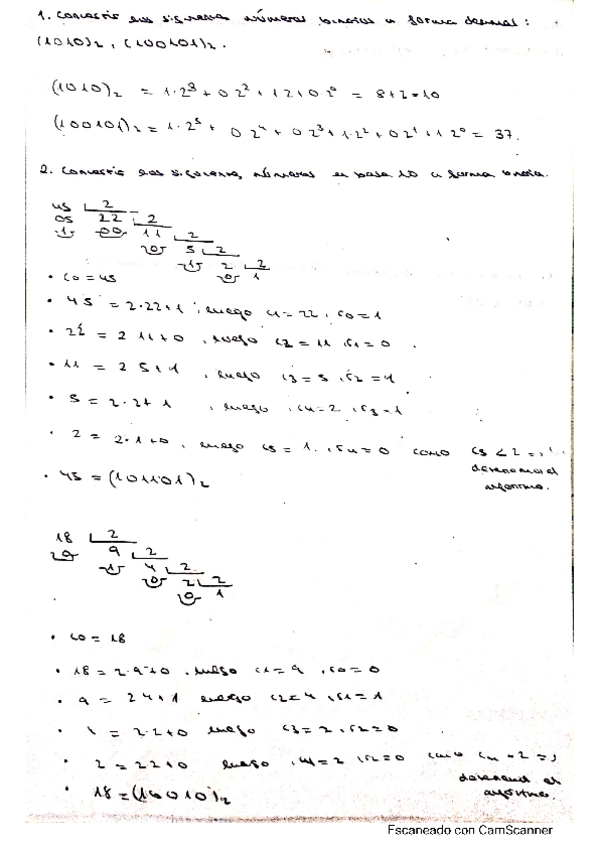 1. Convertir los siguientes números binarios a forma decimal:
(1010)₂, (100101)₂.
(1010)₂ = 1·2³ + 0 2² + 1 2 + 0 2⁰ = 8+2=10
(100101)₂ = 1·2⁵ + 0 2⁴ + 0 2³ + 1·2² + 0 2¹ + 1 2⁰ = 37.
2. Convertir los siguientes números en base 10 a forma binaria.
45 2
05 22 2
1 00 11 2
0 5 2
1 2 2
0 1
• c0 = 45
• 45 = 2·22+1, luego c1 = 22, r0 = 1
• 22 = 2 11+0, luego c2 = 11, r1 = 0
• 11 = 2 5+1, luego c3 = 5, r2 = 1
• 5 = 2·2+1, luego, c4 = 2, r3 = 1
• 2 = 2·1+0, luego c5 = 1, r4 = 0 como c5 < 2 =>
detenemos el
algoritmo.
• 45 = (101101)₂
18 2
9 2
1 4 2
0 2 2
0 1
• c0 = 18
• 18 = 2·9+0, luego c1 = 9, r0 = 0
• 9 = 2 4+1 luego c2 = 4, r1 = 1
• = 2·2+0 luego c3 = 2, r2 = 0
• 2 = 2 2+0 luego, c4 = 2, r2 = 0 como
el
algoritmo.
• 18 = (10010)₂
Escaneado con CamScanner